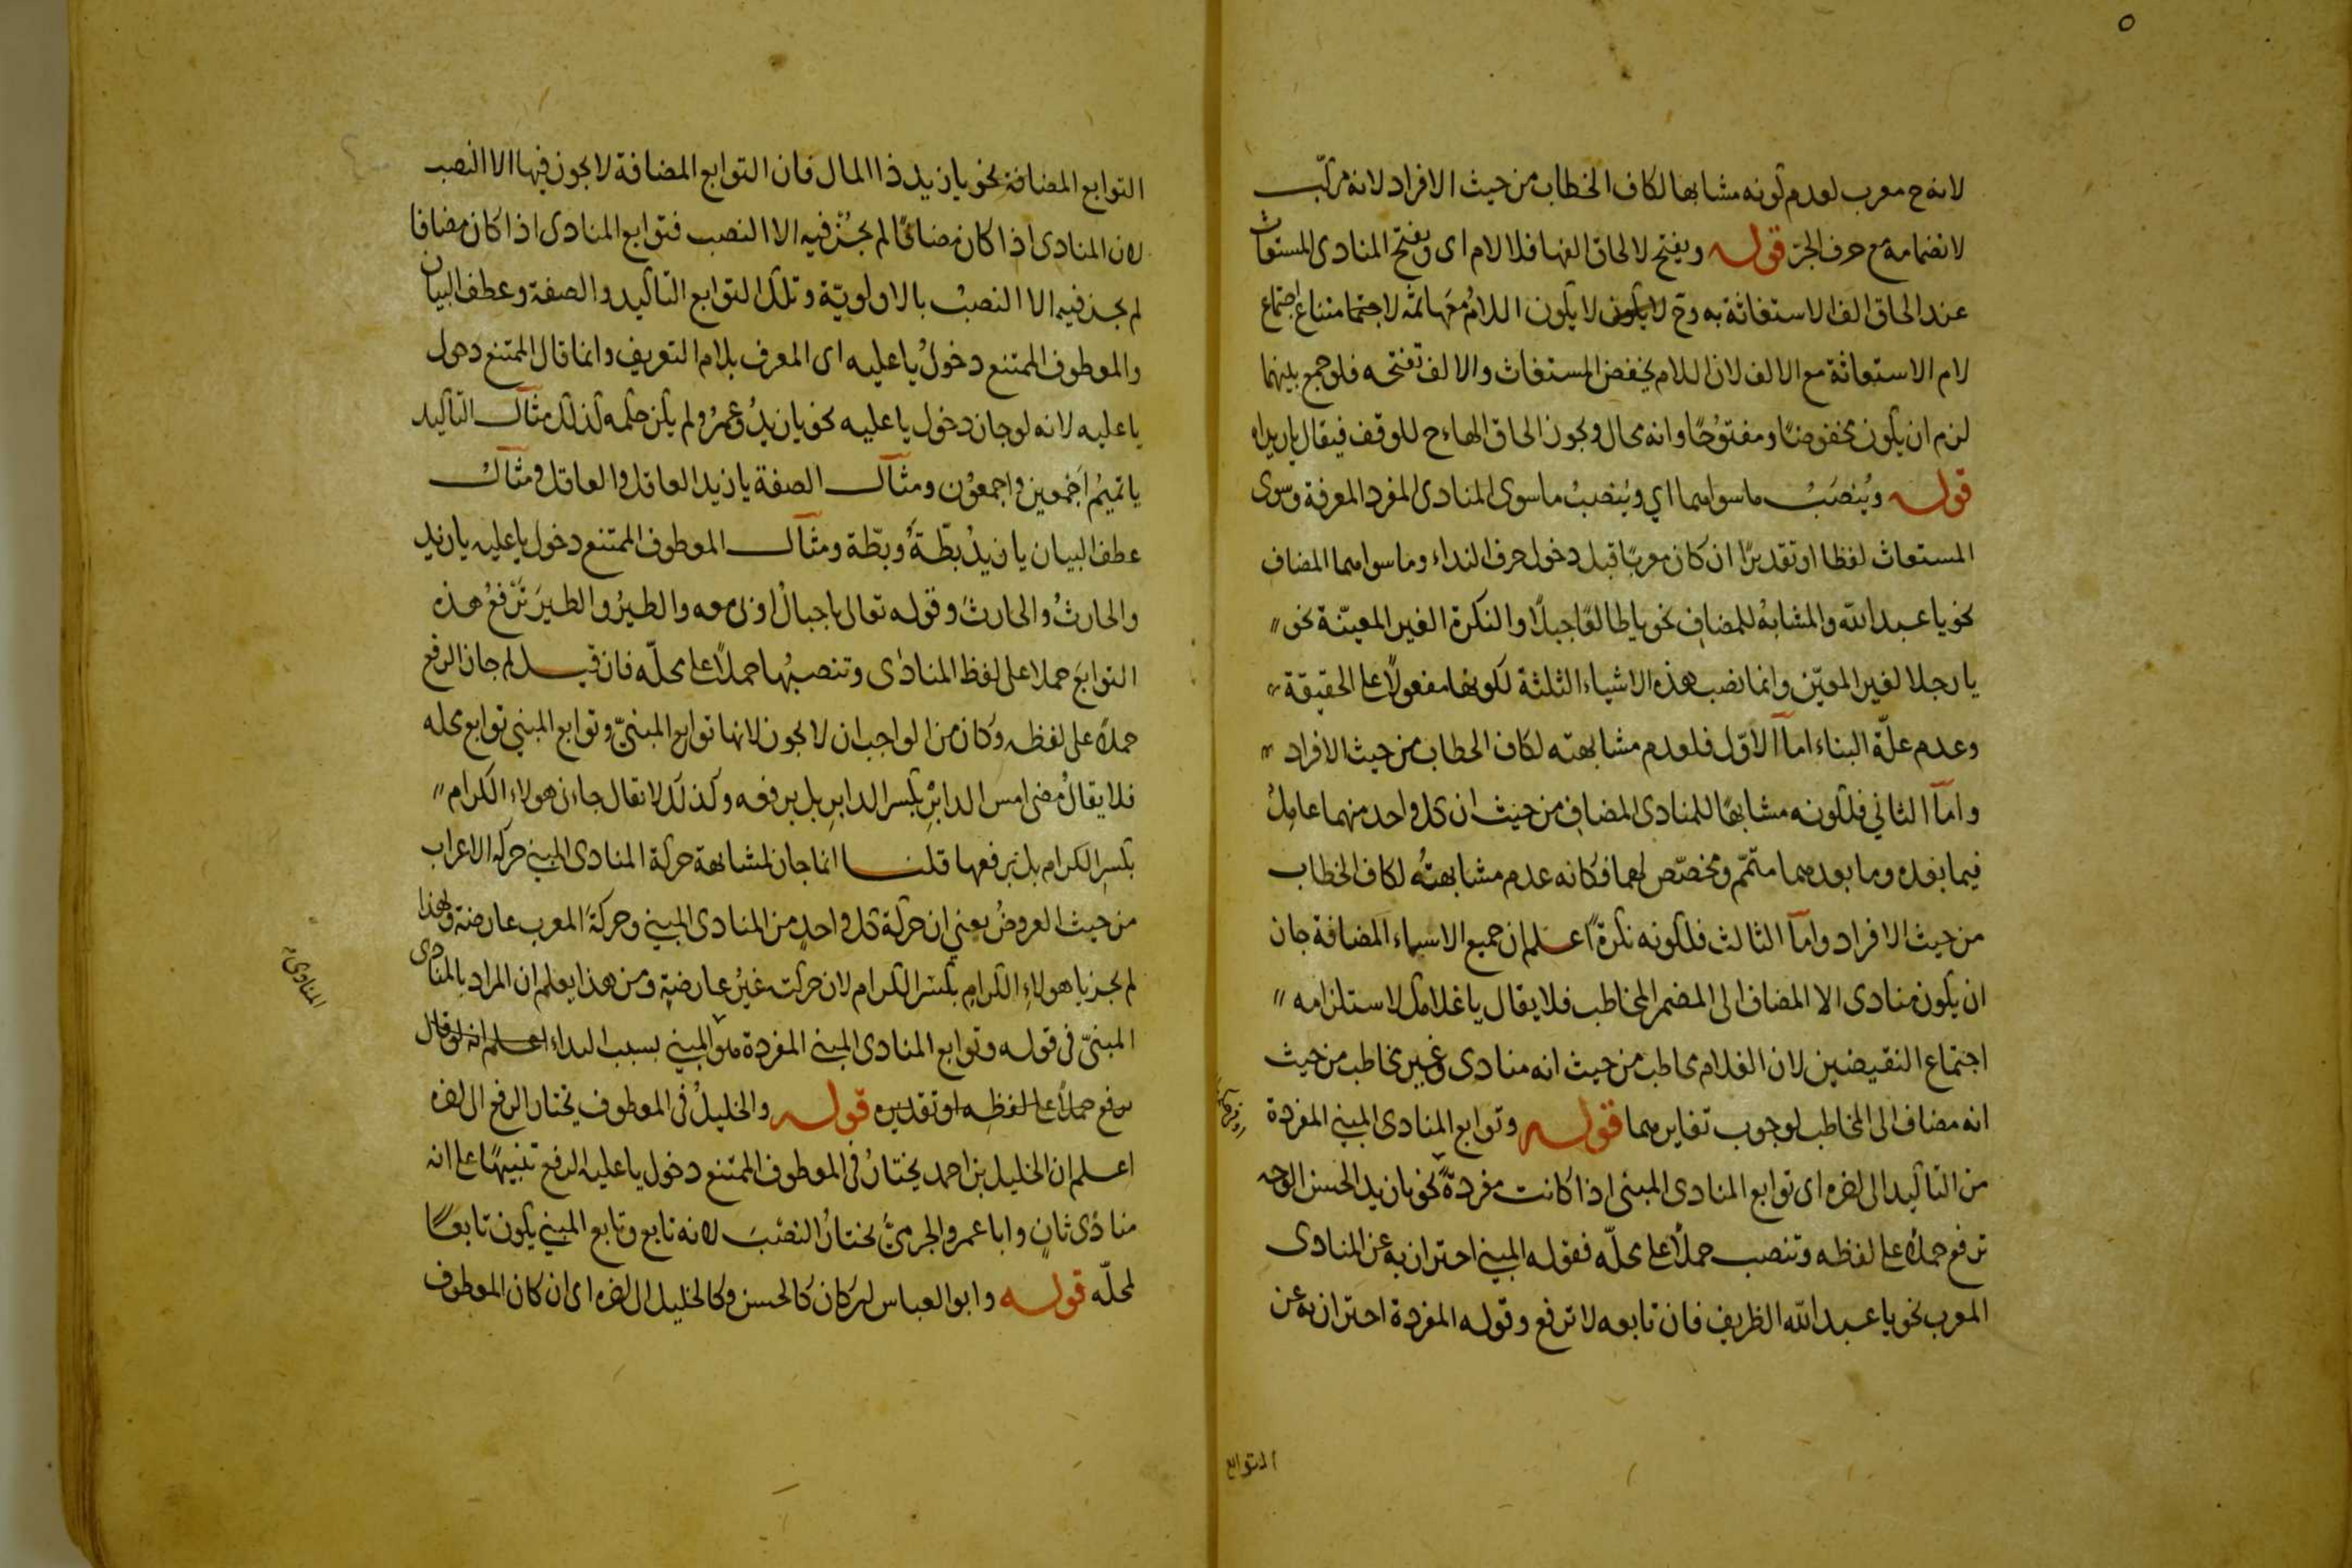 لانه ح معرب لعدم كونه مشابها لكاف الخطاب من حيث الافراد لانه مركب
لانضمامه مع حرف الجر قوله ويفتح لالحاق الفها فلا لام اى ويفتح المنادى المستغاث
عند الحاق الف الاستغاثة به وح لا يكون لا يكون اللام معها ثمه لاجتما متناع اجتماع
لام الاستغاثة مع الالف لان اللام يخفض المستغاث والالف تفتحه فلو جمع بينهما
لزم ان يكون مخفوضًا ومفتوحًا وانه محال ويجوز الحاق الهاء ح للوقف فيقال يا زيداه
قوله ويُنصَبُ ما سواهما اي ويُنصبُ ما سوى المنادى المفرد المعرفة وسوى
المستغاث لفظا او تقديرًا ان كان معربًا قبل دخول حرف النداء وما سواهما المضاف
نحو يا عبد الله والمشابهُ للمضاف نحو يا طالعًا جبلًا والنكرة الغير المعيّنة نحو
يا رجلا لغير المعيّن وانما نصب هذه الاشياء الثلثة لكونها مفعولًا على الحقيقة
وعدم علّة البناء اما الاوّل فلعدم مشابهته لكاف الخطاب من حيث الافراد
واما الثاني فلكونه مشابهًا للمنادى المضاف من حيث ان كل واحد منهما عاملُ
فيما بعده وما بعدهما متمّم ومخصّص لهما فكانه عدم مشابهتهُ لكاف الخطاب
من حيث الافراد واما الثالث فلكونه نكرةً اعلم ان جميع الاسماء المضافة جاز
ان يكون منادى الا المضاف الى المضمر المخاطب فلا يقال يا غلامك لاستلزامه
اجتماع النقيضين لان الغلام مخاطب من حيث انه منادى وغير مخاطب من حيث
انه مضاف الى المخاطب لوجوب تغايرهما قوله وتوابع المنادى المبني المفردة
من التاكيد الى اخره اى توابع المنادى المبنى اذا كانت مفردةً نحو يا زيد الحسن الوجه
ترفع حملًا على لفظه وتنصب حملًا على محلّه فقوله المبني احتراز به عن المنادى
المعرب نحو يا عبد الله الظريف فان تابعه لا ترفع وقوله المفردة احتراز به عن
التوابع
التوابع المضافة نحو يا زيد ذا المال فان التوابع المضافة لا يجوز فيها الا النصب
لان المنادى اذا كان مضافًا لم يجُز فيه الا النصب فتوابع المنادى اذا كان مضافا
لم يجز فيه الا النصبُ بالاولويّة وتلك التوابع التاكيد والصفة وعطف البيان
والمعطوف الممتنع دخولُ يا عليه اى المعرف بلام التعريف وانما قال الممتنع دخول
يا عليه لانه لو جاز دخول يا عليه نحو يا زيدُ وعمرُو لم يكن حكمه كذلك مثال التاكيد
يا تميمُ اجمعين واجمعوُن ومثال الصفة يا زيد العاقل والعاقل ومثالُ
عطف البيان يا زيدُ بطّةُ وبطّة ومثال المعطوف الممتنع دخول يا عليه يا زيد
والحارثُ والحارثَ وقوله تعالى يا جبالُ اوبى معه والطيرُ والطيرَ تَرفعُ هذه
التوابعَ حملا على لفظ المنادى وتنصبُها حملًا على محلّه فان قيل لم جاز الرفع
حملا على لفظه وكان من الواجب ان لا يجوز لانها توابع المبنيّ وتوابع المبني توابع محله
فلا يقالُ مضى امس الدابرِ بكسر الدابرِ بل برفعه وكذلك لا يقال جاءنى هولاء الكرام
بكسر الكرام بل برفعها قلنا انما جاز لمشابهة حركة المنادى المبني حركة الاعراب
من حيث العروضُ يعني ان حركة كل واحدٍ من المنادى المبني وحركةَ المعرب عارضة ولهذا
لم يجز يا هولاءِ الكرامِ بكسر الكرام لان حركته غيرُ عارضةٍ ومن هذا يعلم ان المراد بالمنادى
المبنىّ فى قوله وتوابع المنادى المبنى المفردة هو المبني بسبب النداء اعلم انه لو قال
يرفع حملًا على لفظهِ او تقديره قوله والخليلُ فى المعطوف يختار الرفع الى اخره
اعلم ان الخليل بن احمد يختارُ فى المعطوف الممتنع دخول يا عليه الرفع تنبيهًا على انه
منادًى ثانٍ وابا عمرو الجرميَّ يختارُ النصْبَ لانه تابع وتابع المبني يكون تابعًا
لمحلّه قوله وابو العباس ان كان كالحسن وكالخليل الى اخره اى ان كان المعطوف
المنادى